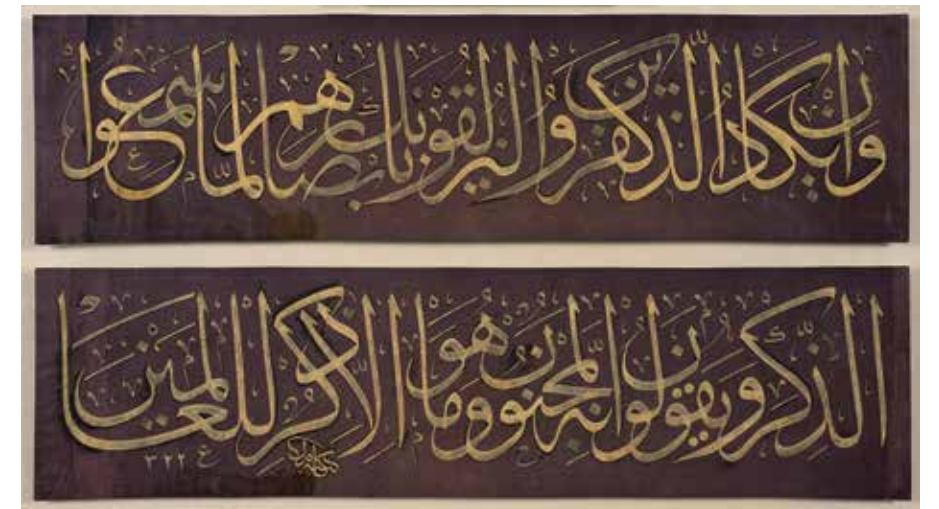 وان يكاد الذين كفروا ليزلقونك بابصارهم لما سمعوا
الذكر ويقولون انه لمجنون وما هو الا ذكر للعالمين
٣٢٢